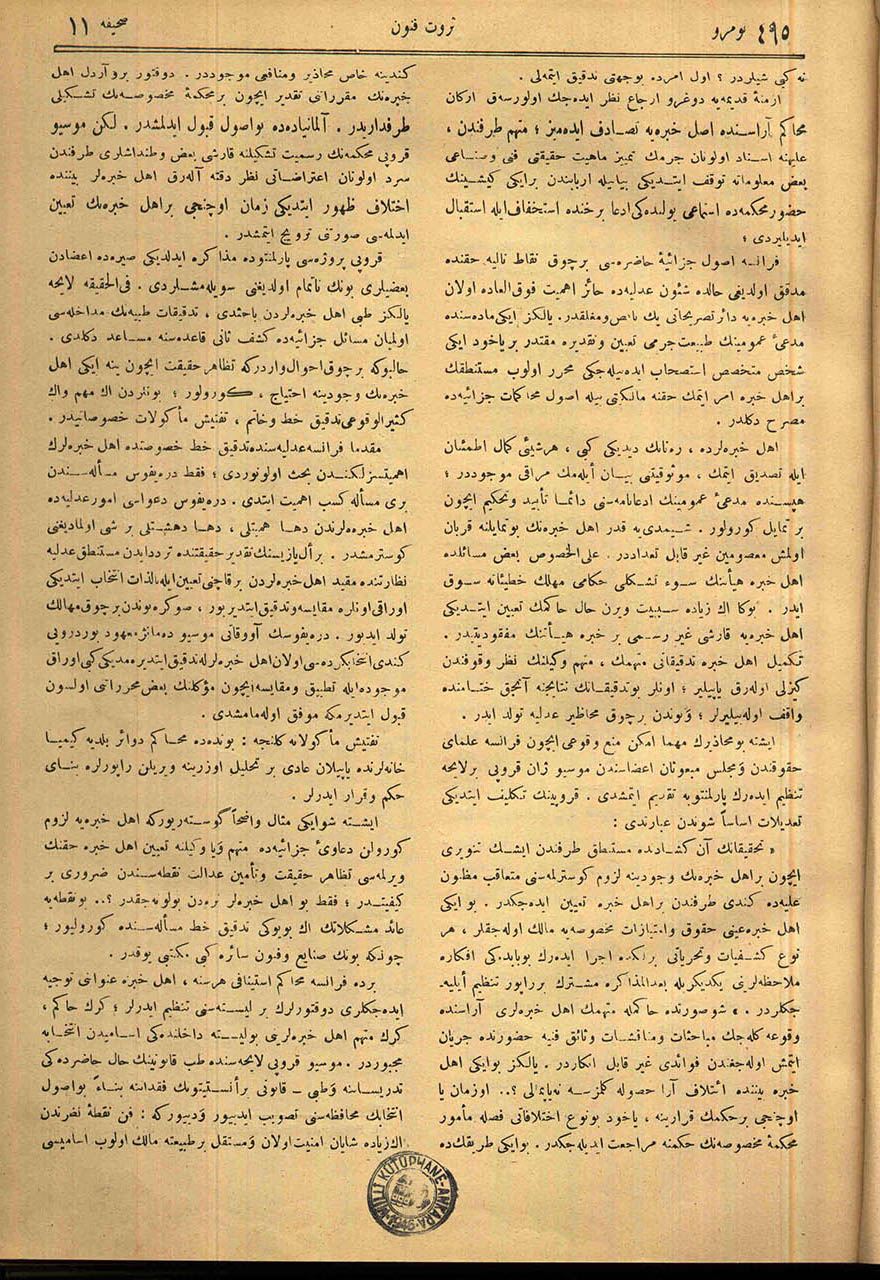 ٤٩٥ نومرو
ثروت فنون
صحیفه ١١
نه کبی شیلردر ؟ اول امرده بوجهتی تدقیق ایتمه‌لی .
ازمنۀ قدیمه‌یه دوغرو ارجاع نظر ایده‌جك اولورسه‌ق ارکان
محاکم آراسنده اصل خبره‌یه تصادف ایده‌میز ؛ متهم طرفندن ،
علیهنه اسناد اولونان جرمك تمییز ماهیت حقیقتی فنی وصناعی
بعض معلوماته توقف ایتدیکی بیانیله اربابندن برایکی کیشینك
حضور محکمه‌ده استماعی یولنده‌کی ادعا برخنده استخفاف ایله استقبال
ایدیلیردی ؛
فرانسه اصول جزائیۀ حاضره‌سی برچوق نقاط تالیه حقنده
مدقق اولدیغی حالده شئون عدلیه‌ده حائز اهمیت فوق‌العاده اولان
اهل خبره‌یه دائر تصریحاتی پك ناقص ومغلقدر . یالکز ایکی ماده‌سنده
مدعیٔ عمومینك طبیعت جرمی تعیین وتقدیره مقتدر بر یاخود ایکی
شخص متخصص استصحاب ایده‌بیله‌جکی محرر اولوب مستنطقك
براهل خبره امر ایتمك حقنه مالکیتی بیله اصول محاکمات جزائیه‌ده
مصرح دکلدر .
اهل خبره‌لرده ، ره‌نانك دیدیکی کبی ، هرشیئی کمال اطمئنان
ایله تصدیق ایتمك ، موثوقیتی بیان ایله‌مك مراقی موجوددر ؛
هپسنده مدعیٔ عمومینك ادعانامه‌سنی دائما تأیید وتحکیم ایچون
بر تمایل کورولور . شیمدی‌یه قدر اهل خبره‌نك بوتمایلنه قربان
اولمش معصومین غیر قابل تعداددر . علی‌الخصوص بعض مسائلده
اهل خبره هیأتنك سوء تشکلی حکامی مهلك خطیئاته سوق
ایدر . بوکا اك زیاده سببیت ویرن حال حاکمك تعیین ایتدیکی
اهل خبره‌یه قارشی غیر رسمی بر خبره هیأتنك مفقودیتیدر .
تکمیل اهل خبره تدقیقاتی متهمك ، متهم وکیلنك نظر وقوفندن
کیزلی اوله‌رق یاپیلیر ؛ اونلر بوتدقیقاتك نتایجنه آنجق ختامنده
واقف اوله‌بیلیرلر ؛ وبوندن برچوق محاظیر عدلیه تولد ایدر .
ایشته بومحاذیرك مهما امکن منع وقوعی ایچون فرانسه علمای
حقوقندن ومجلس مبعوثان اعضاسندن موسیو ژان قروپی برلایحه
تنظیم ایده‌رك پارلمنتویه تقدیم ایتمشدی . قروپینك تکلیف ایتدیکی
تعدیلات اساساً شوندن عبارتدی :
« تحقیقاتك آن کشادنده مستنطق طرفندن ایشك تنویری
ایچون براهل خبره‌نك وجودینه لزوم کوسترلمه‌سنی متعاقب مظنون
علیه‌ده کندی طرفندن براهل خبره تعیین ایده‌جکدر . بوایکی
اهل خبره عینی حقوق وامتیازات مخصوصه‌یه مالك اوله‌جقلر ، هر
نوع کشفیات وتحریاتی برلکده اجرا ایده‌رك بوبابده‌کی افکاره
ملاحظه‌لرینی یکدیکریله بعدالمذاکره مشترك برراپور تنظیم ایلیه‌-
جکلردر . » شو صورتده حاکمله متهمك اهل خبره‌لری آراسنده
وقوعه کله‌جك مباحثات ومناقشات وثائق فنیه حضورنده جریان
ایتمش اوله‌جغندن فوائدی غیر قابل انکاردر . یالکز بوایکی اهل
خبره بیننده ائتلاف آرا حصوله کلمزسه نه‌یاپمالی ؟.. اوزمان یا
اوچنجی برحکمك قرارینه ، یاخود بونوع اختلافاتی فصله مأمور
محکمۀ مخصوصه‌نك حکمنه مراجعت ایدیله‌جکدر . بوایکی طریقك‌ده
کندینه خاص محاذیر ومنافعی موجوددر . دوقتور بروآردل اهل
خبره‌نك مقرراتی تقدیر ایچون برمحکمۀ مخصوصه‌نك تشکیلی
طرفداریدر . آلمانیاده‌ده بواصول قبول ایدلمشدر . لکن موسیو
قروپی محکمه‌نك رسمیت تشکیلنه قارشی بعض وطنداشلری طرفندن
سرد اولونان اعتراضاتی نظر دقته آله‌رق اهل خبره‌لر بیننده
اختلاف ظهور ایتدیکی زمان اوچنجی براهل خبره‌نك تعیین
ایدلمه‌سی صورتنی ترویج ایتمشدر .
قروپی پروژه‌سی پارلمنتوده مذاکره ایدلدیکی صیره‌ده اعضادن
بعضیلری بونك ناتمام اولدیغنی سویله‌مشلردی . فی‌الحقیقه لایحه
یالکز طبی اهل خبره‌لردن باحثدی ، تدقیقات طبیه‌نك مداخله‌سی
اولمیان مسائل جزائیه‌ده کشف ثانی قاعده‌سنه مساعد دکلدی .
حالبوکه برچوق احوال واردرکه تظاهر حقیقت ایچون ینه ایکی اهل
خبره‌نك وجودینه احتیاج ، کورولور ؛ بونلردن اك مهم واك
کثیرالوقوعی تدقیق خط وخاتم ، تفتیش مأکولات خصوصاتیدر .
مقدما فرانسه عدلیه‌سنده تدقیق خط خصوصنده اهل خبره‌لرك
اهمیتسزلکندن بحث اولونوردی ؛ فقط دره‌یفوس مسأله‌سندن
بری مسأله کسب اهمیت ایتدی . دره‌یفوس دعواسی امور عدلیه‌ده
اهل خبره‌لرندن دها همیتلی ، دها دهشتلی بر شی اولمادیغنی
کوسترمشدر . برأل یازیسنك تقدیر حقیقتنده تردد ایدن مستنطق عدلیه
نظارتنده مقید اهل خبره‌لردن برقاچنی تعیین ایله بالذات انتخاب ایتدیکی
اوراقی اونلره مقایسه وتدقیق ایتدیریور ، صوکره بوندن برچوق مهالك
تولد ایدیور . دره‌یفوسك آووقاتی موسیو ده‌مانژ معهود بوردرونی
کندی انتخابکرده‌سی اولان اهل خبره‌لرله تدقیق ایتدیره‌مدیکی کبی اوراق
موجوده‌ایله تطبیق ومقایسه ایچون مؤکلنك بعض محرراتنی اولسون
قبول ایتدیرمکه موفق اوله‌مامشدی .
تفتیش مأکولاته کلنجه : بونده‌ده محاکم دوائر بلدیه کیمیا
خانه‌لرنده یاپیلان عادی بر تحلیل اوزرینه ویریلن راپورلره بنای
حکم وقرار ایدرلر .
ایشته شوایکی مثال واضحاً کوستریورکه اهل خبره‌یه لزوم
کورولن دعاویٔ جزائیه‌ده متهم ویا وکیلنه تعیین اهل خبره حقنك
ویرلمه‌سی تظاهر حقیقت وتأمین عدالت نقطه‌سندن ضروری بر
کیفیتدر ؛ فقط بو اهل خبره‌لر نره‌دن بولونه‌جقدر ؟.. بونقطه‌یه
عائد مشکلاتك اك بویوکی تدقیق خط مسأله‌سنده کورولیور ؛
چونکه بونك صنایع وفنون سائره کبی مکتبی یوقدر .
برده فرانسه محاکم استینافی هرسنه ، اهل خبره عنوانی توجیه
ایده‌جکلری دوقتورلرك بر لیسته‌سنی تنظیم ایدرلر ؛ کرك حاکم ،
کرك متهم اهل خبره‌لرینی بولیسته داخلنده‌کی اسامیدن انتخابه
مجبوردر . موسیو قروپی لایحه‌سنده طب قانونینك حال حاضرده‌کی
تدریساتنه وطبی - قانونی برأنستیتونك فقداننه بناءً بواصول
انتخابك محافظه‌سنی تصویب ایدییور ودییورکه : فن نقطۀ نظرندن
اك زیاده شایان امنیت اولان ومستقل برطبیعته مالك اولوب اسامیسی
MİLLİ KÜTÜPHANE-ANKARA
1946